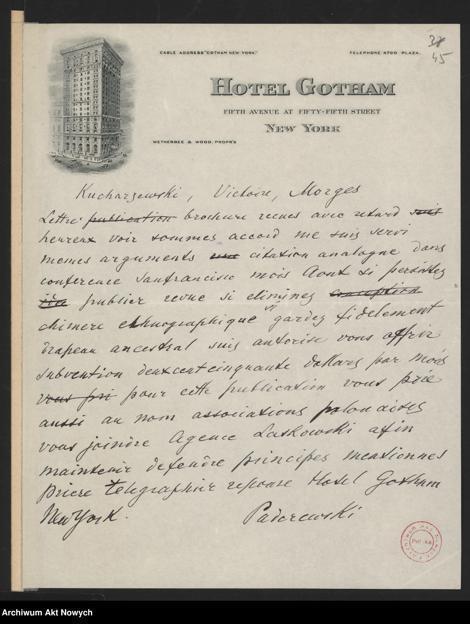 38
45
CABLE ADDRESS "GOTHAM NEW YORK."
TELEPHONE 4700 PLAZA.
HOTEL GOTHAM
FIFTH AVENUE AT FIFTY-FIFTH STREET
NEW YORK
WETHERBEE & WOOD, PROPR'S
Kucharzewski, Victoire, Morges
Lettre publication brochure recues avec retard suis
heureux voir sommes accord me suis servi
memes arguments une citation analogue dans
conference Sanfrancisco mois Aout si persistez
publier revue si eliminez conception
chimere ethnographique si gardez fidelement
drapeau ancestral suis autorise vous offrir
subvention deuxcentcinquante dollars par mois
vous pri pour cette publication vous prie
aussi au nom associations polonaises
vous joindre Agence Laskowski afin
maintenir defendre principes mentionnes
priere telegraphier reponse Hotel Gotham
New York. Paderewski
Archiwum Akt Nowych